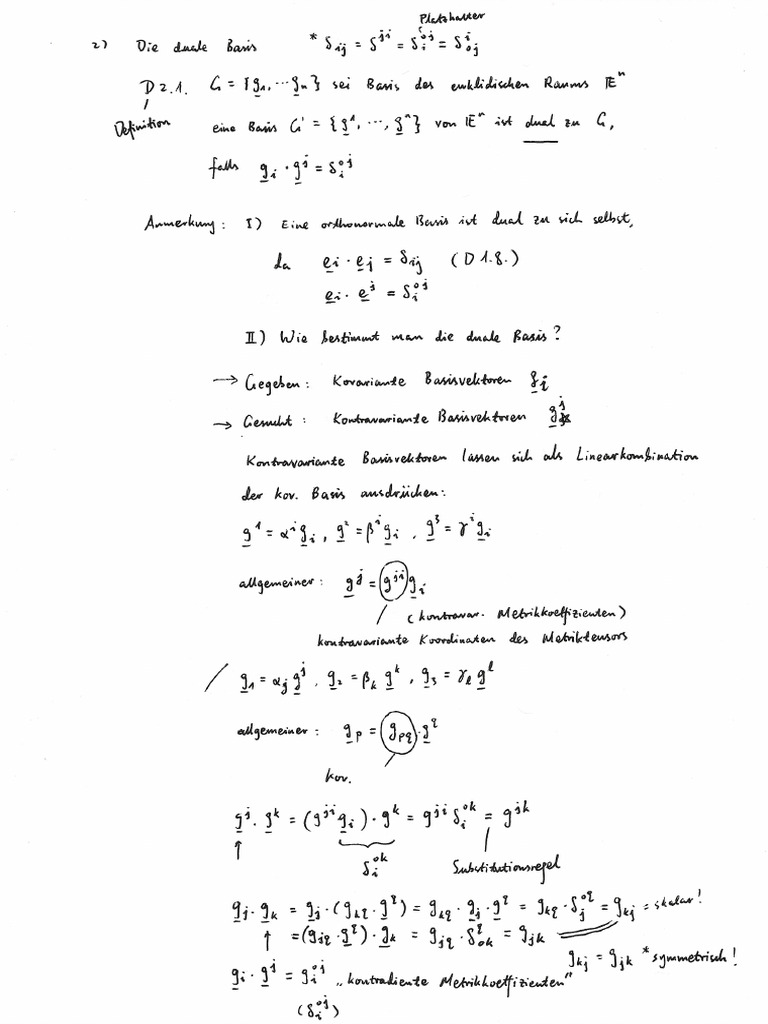 Platzhalter
2) Die duale Basis * δ_ij = δ^ji = δ_i^∘j = δ^i_∘j
D 2.1. G = {g_1, ... g_n} sei Basis des euklidischen Raums 𝔼^n
Definition
eine Basis G' = {g^1, ..., g^n} von 𝔼^n ist dual zu G,
falls g_i · g^j = δ_i^∘j
Anmerkung: I) Eine orthonormale Basis ist dual zu sich selbst,
da e_i · e_j = δ_ij (D 1.8.)
e_i · e^j = δ_i^∘j
II) Wie bestimmt man die duale Basis?
→ Gegeben: Kovariante Basisvektoren g_i
→ Gesucht: Kontravariante Basisvektoren g^j
Kontravariante Basisvektoren lassen sich als Linearkombination
der kov. Basis ausdrücken:
g^1 = α^i g_i, g^2 = β^i g_i, g^3 = γ^i g_i
allgemeiner: g^j = g^ji g_i
(kontravar. Metrikkoeffizienten)
kontravariante Koordinaten des Metriktensors
/ g_1 = α_j g^j, g_2 = β_k g^k, g_3 = γ_l g^l
allgemeiner: g_p = g_pq · g^q
kov.
g^j · g^k = (g^ji g_i) · g^k = g^ji δ_i^∘k = g^jk
↑ δ_i^∘k Substitutionsregel
g_j · g_k = g_j · (g_kq · g^q) = g_kq · g_j · g^q = g_kq · δ_j^∘q = g_kj = skalar!
↑ = (g_jq · g^q) · g_k = g_jq · δ^q_∘k = g_jk
g_kj = g_jk * symmetrisch!
g_i · g^j = g_i^∘j „kontradiente Metrikkoeffizienten"
(δ_i^∘j)